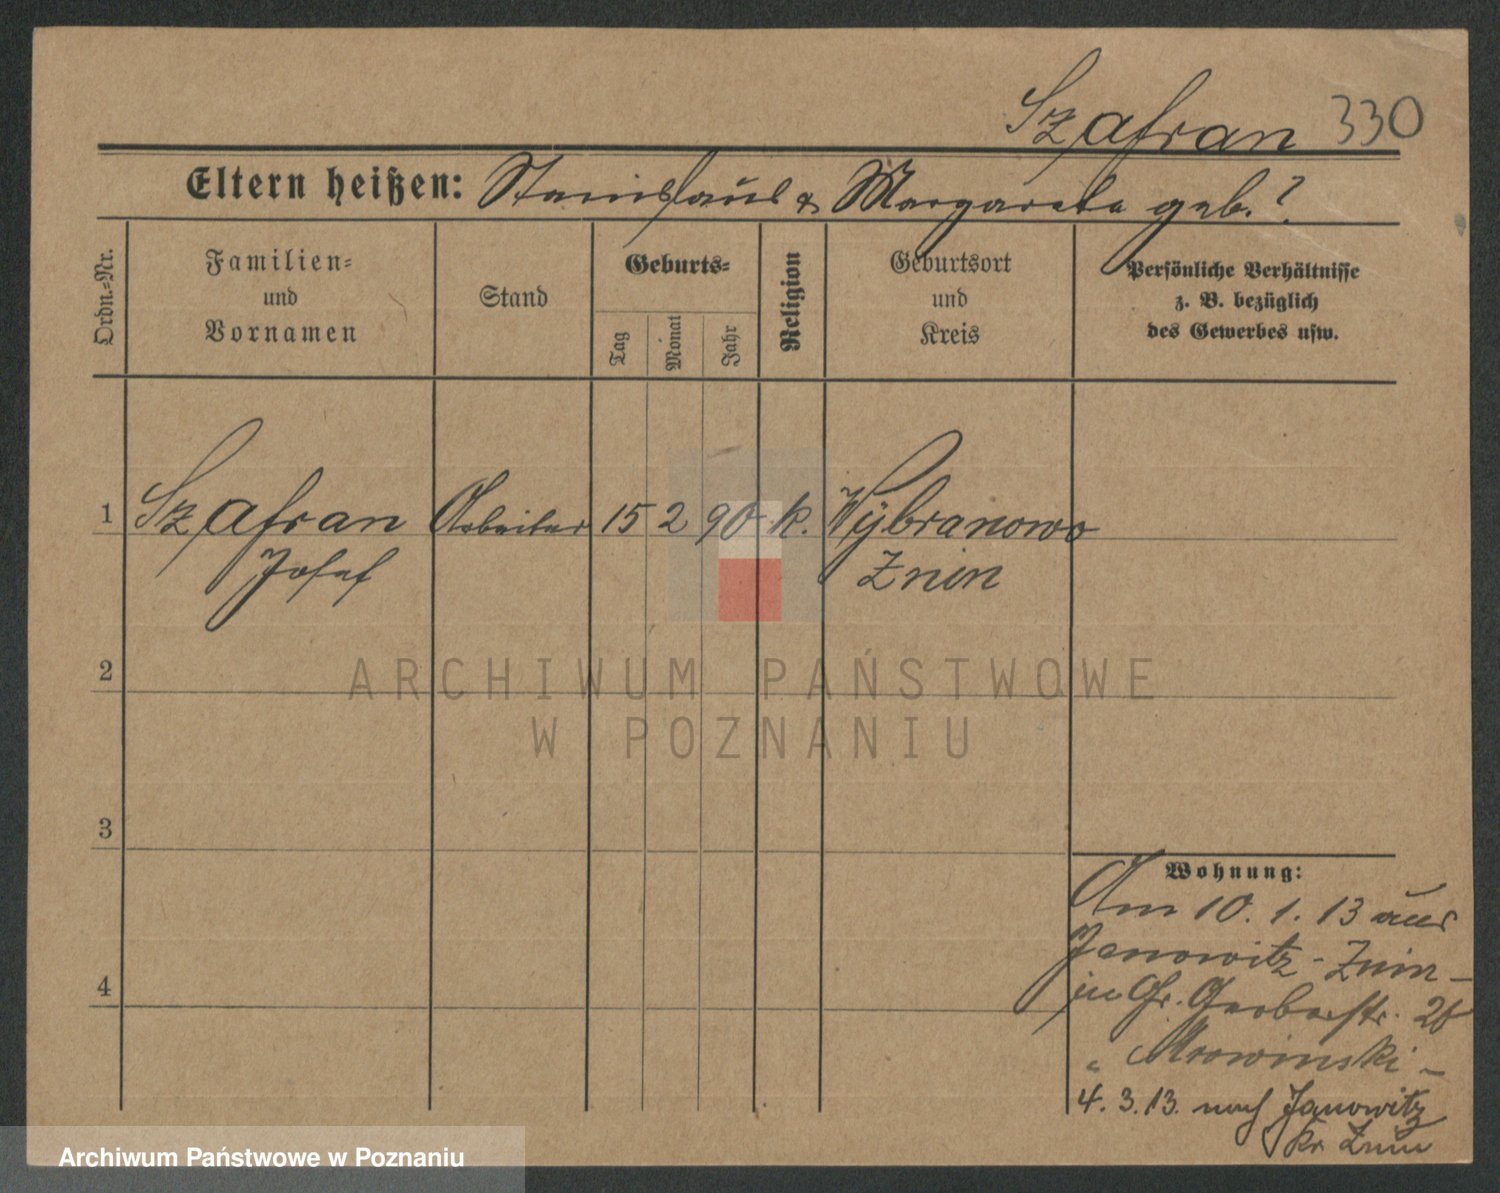 Szafran 330
Eltern heißen: Stanislaus & Margareta geb. ?
Ordn.=Nr.
Familien=
und
Vornamen
Stand
Geburts=
Tag
Monat
Jahr
Religion
Geburtsort
und
Kreis
Persönliche Verhältnisse
z. B. bezüglich
des Gewerbes usw.
1 Szafran Arbeiter 15 2 90 k. Wybranowo
Josef Znin
2
ARCHIWUM PAŃSTWOWE
W POZNANIU
3
Wohnung:
Am 10. 1. 13 aus
Janowitz - Znin -
in Gr. Gerberstr.
„ Mrowinski -
4
4. 3. 13. nach Janowitz
Kr. Znin
Archiwum Państwowe w Poznaniu